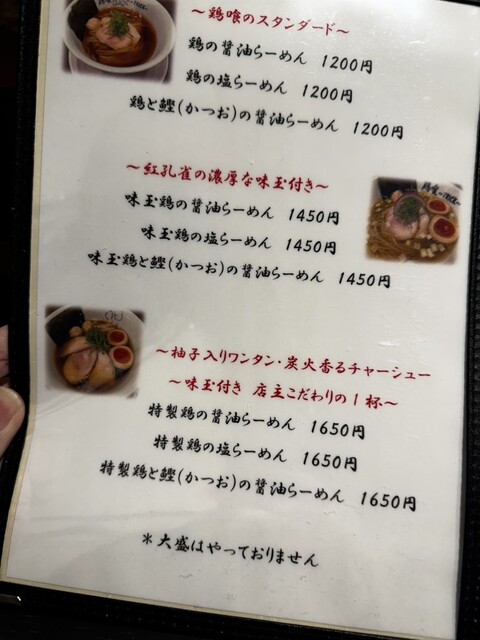 ～鶏喰のスタンダード～
鶏の醤油らーめん 1200円
鶏の塩らーめん 1200円
鶏と鰹(かつお)の醤油らーめん 1200円
～紅孔雀の濃厚な味玉付き～
味玉鶏の醤油らーめん 1450円
味玉鶏の塩らーめん 1450円
味玉鶏と鰹(かつお)の醤油らーめん 1450円
～柚子入りワンタン・炭火香るチャーシュー
～味玉付き 店主こだわりの1杯～
特製鶏の醤油らーめん 1650円
特製鶏の塩らーめん 1650円
特製鶏と鰹(かつお)の醤油らーめん 1650円
＊大盛はやっておりません